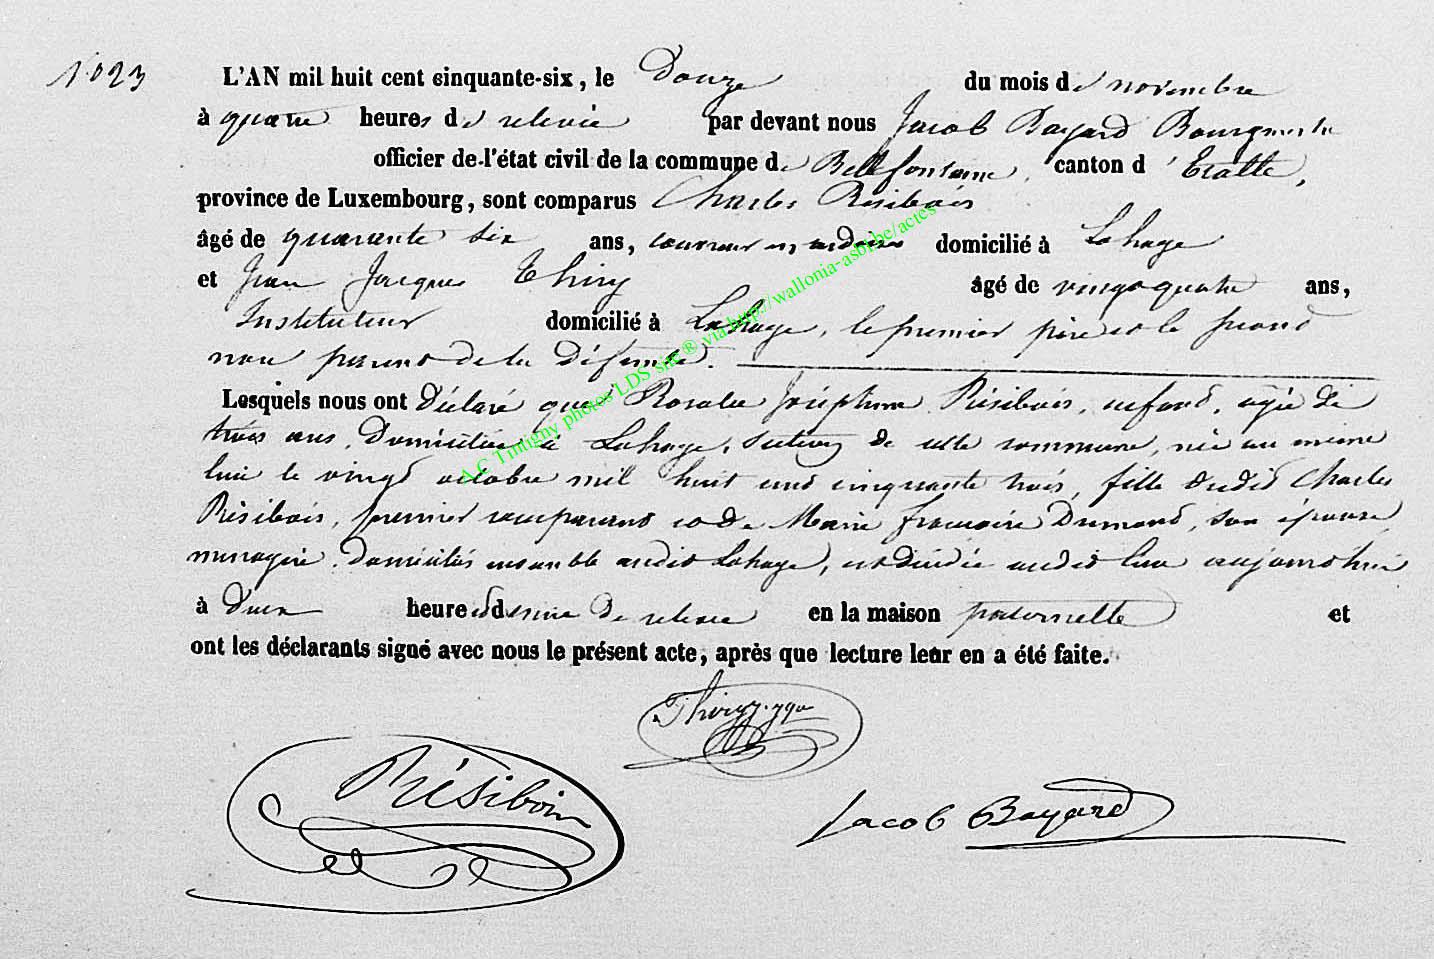 N° 23
L'AN mil huit cent cinquante-six, le Douze du mois de novembre
à quatre heures de relevée par devant nous Jacob Bayard Bourgmestre
officier de l'état civil de la commune de Bellefontaine, canton d'Etalle,
province de Luxembourg, sont comparus Charles Résibois
âgé de quarante six ans, couvreur en ardoises domicilié à Lahage
et Jean Jacques Thiry âgé de vingt quatre ans,
Instituteur domicilié à Lahage, le premier père et le second
non parent de la Défunte.
Lesquels nous ont Déclaré que Rosalie Joséphine Résibois, enfant, agée de
trois ans, Domiciliée à Lahage, section de cette commune, née au même
lieu le vingt octobre mil huit cent cinquante trois, fille dudit Charles
Résibois, premier comparant et de Marie françoise Dumont, son épouse
menagère, domiciliés ensemble audit Lahage, est décédée audit lieu aujourd'hui
à Deux heures et demie de relevée en la maison paternelle et
ont les déclarants signé avec nous le présent acte, après que lecture leur en a été faite.
Thiry
Résibois
Jacob Bayard
A.C Tintigny photos LDS site ® via http://wallonia-asbl.be/actes